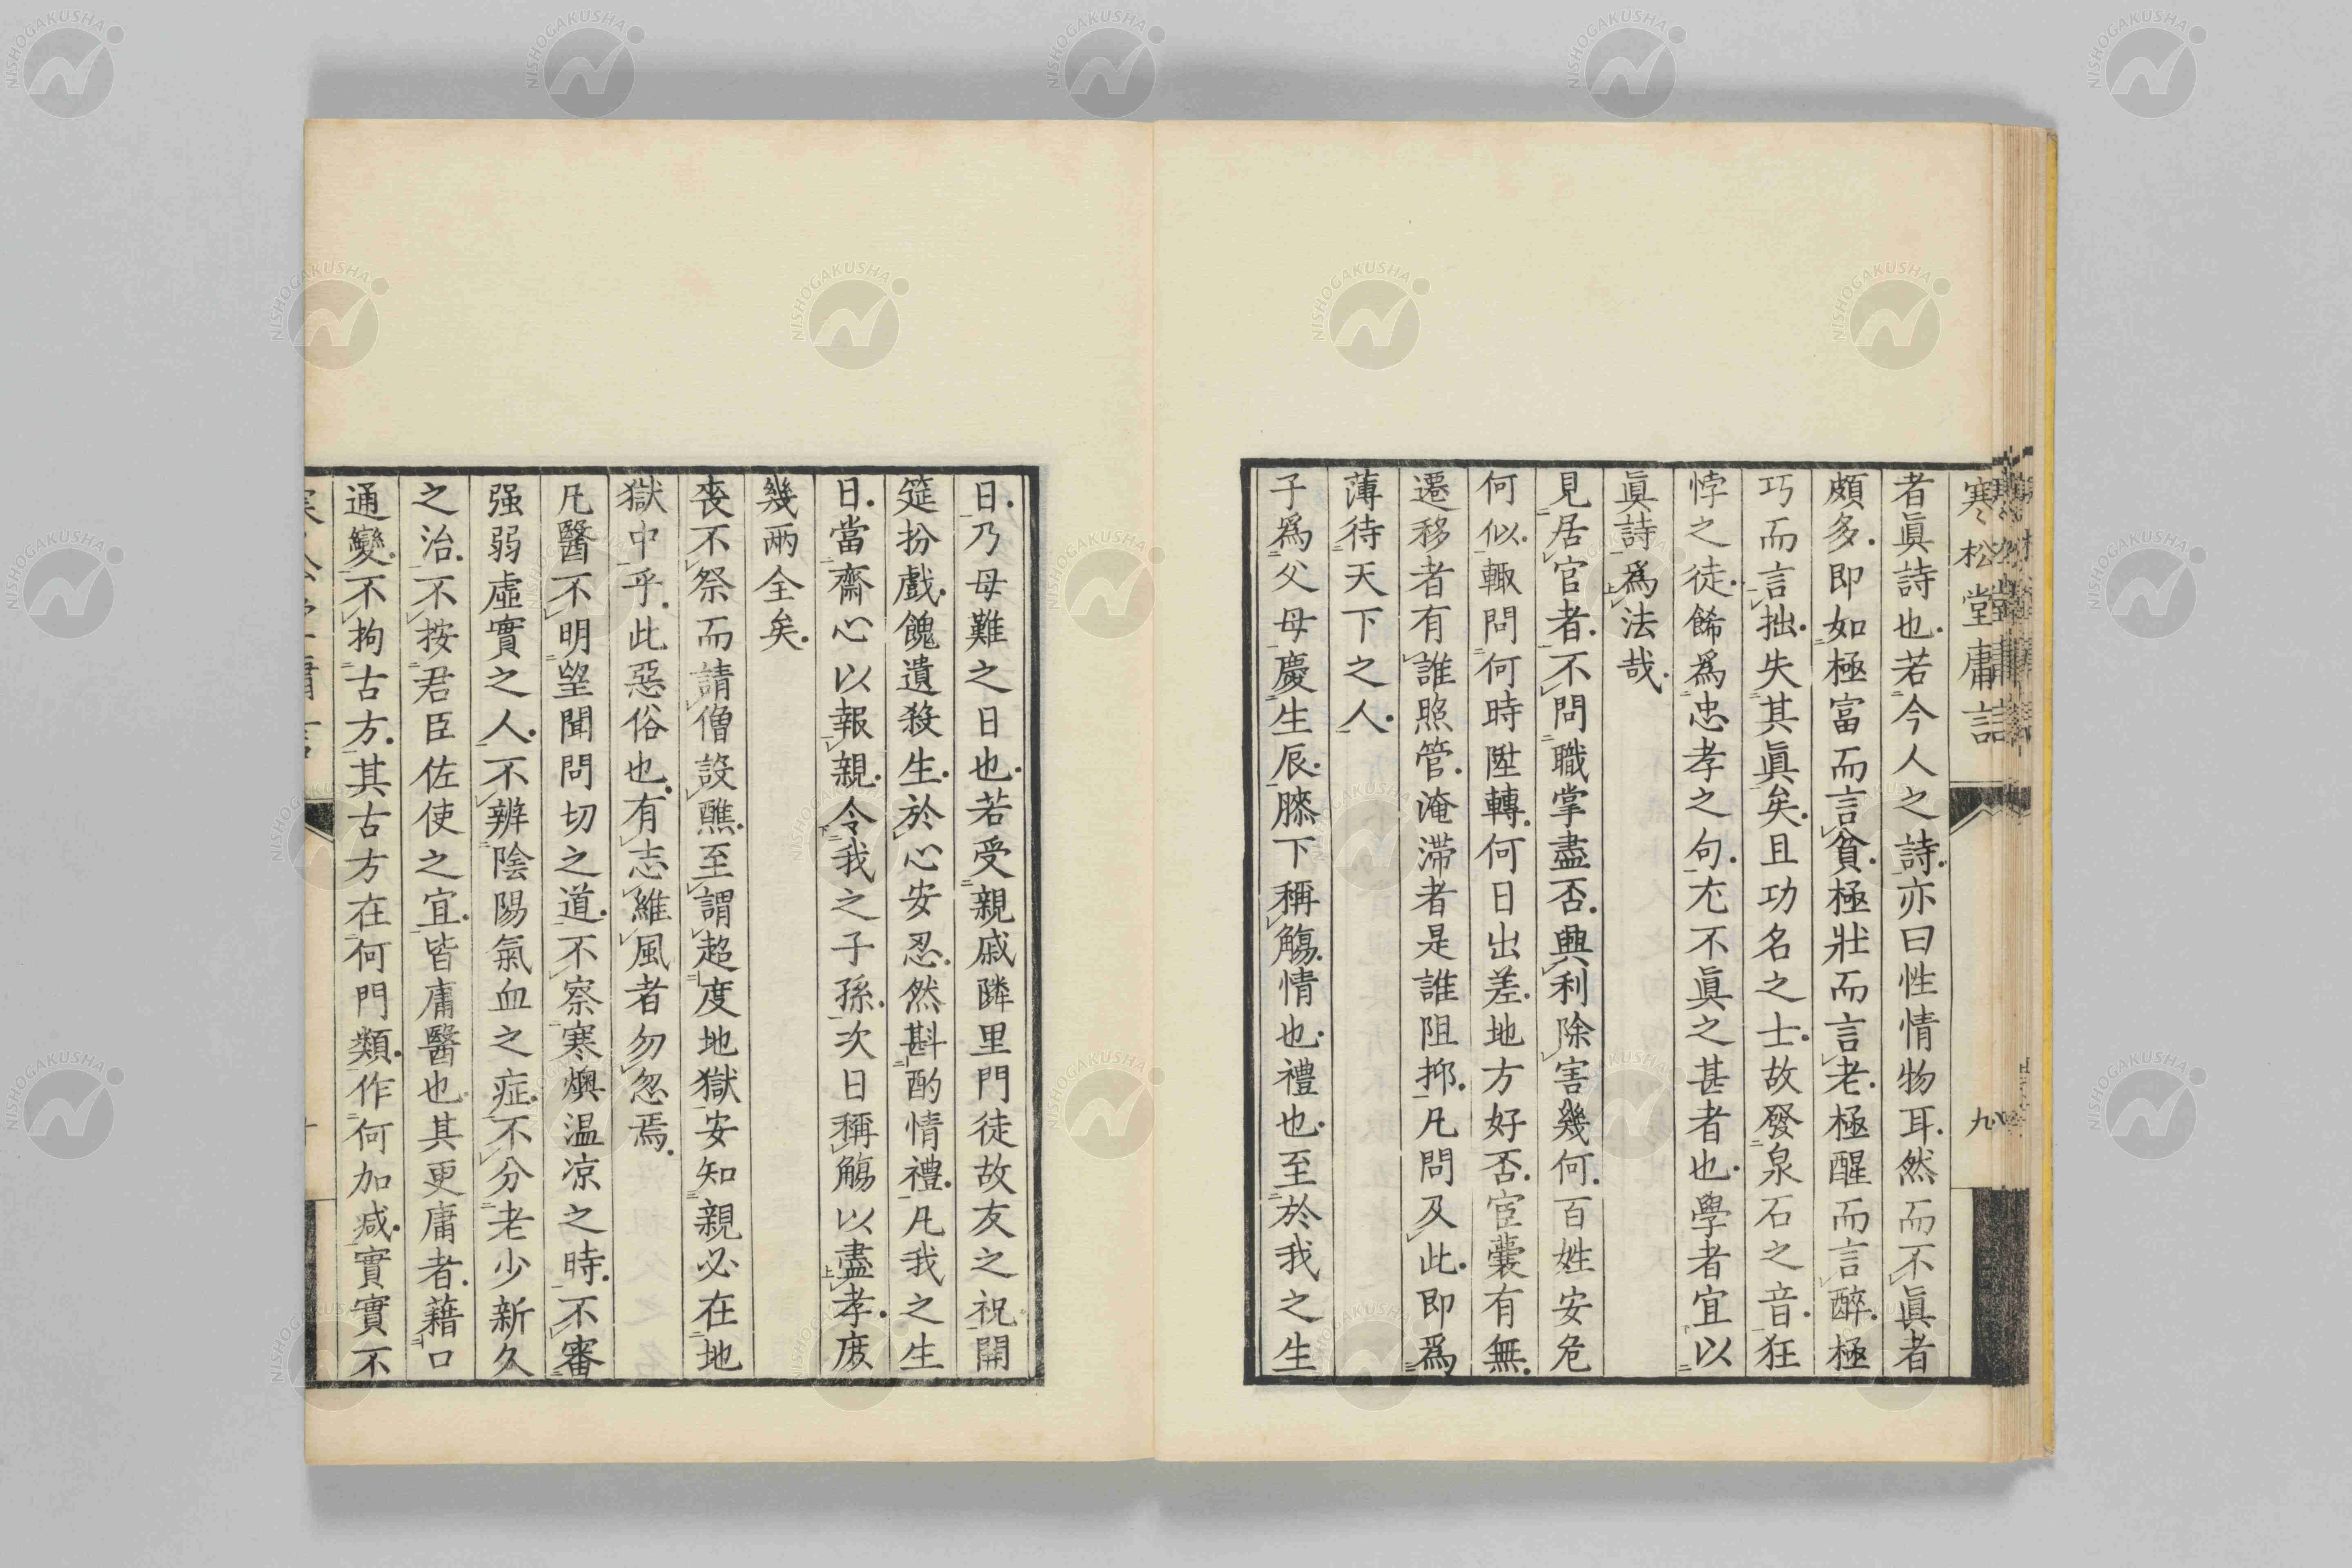 寒松堂庸言
九
者眞詩也若今人之詩亦曰性情物耳然而不眞者
頗多即如極富而言貧極壯而言老極醒而言醉極
巧而言拙失其眞矣且功名之士故發泉石之音狂
悖之徒餙爲忠孝之句尤不眞之甚者也學者宜以
眞詩爲法哉
見居官者不問職掌盡否興利除害幾何百姓安危
何似輙問何時陞轉何日出差地方好否宦囊有無
遷移者有誰照管淹滯者是誰阻抑凡問及此即爲
薄待天下之人
子爲父母慶生辰膝下稱觴情也禮也至於我之生
日乃母難之日也若受親戚隣里門徒故友之祝開
筵扮戲餽遺殺生於心安忍然斟酌情禮凡我之生
日當齋心以報親令我之子孫次日稱觴以盡孝庻
幾兩全矣
喪不祭而請僧設醮至謂超度地獄安知親必在地
獄中乎此惡俗也有志維風者勿忽焉
凡醫不明望聞問切之道不察寒燠温凉之時不審
强弱虛實之人不辨陰陽氣血之症不分老少新久
之治不按君臣佐使之宜皆庸醫也其更庸者藉口
通變不拘古方其古方在何門類作何加减實實不